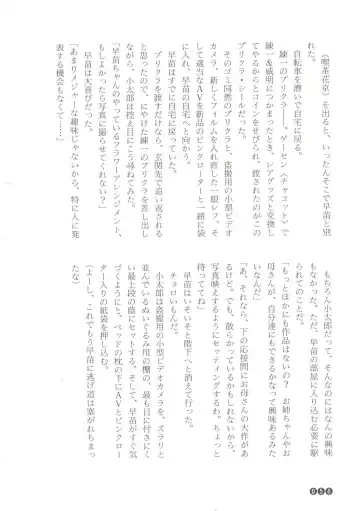 〈喫茶花京〉を出ると、いったんそこで早苗と別
れた。
自転車を漕いで自宅に戻る。
練一のプリクラ――。ゲーセン〈チャコット〉で
練一&威明につかまったとき、レアグッズと交換し
てやるからとコインをせびられ、渡されたのがこの
プリクラ・シールだった。
そのゴミ同然のプリクラと、盗撮用の小型ビデオ
カメラ、新しくフィルムを入れ直した一眼レフ、そ
して適当なAVを新品のピンクローターと一緒に袋
に入れ、早苗の自宅へと向かう。
早苗はすでに自宅に戻っていた。
プリクラを渡すだけなら、玄関先で追い返される
と思ったので、にやけた練一のプリクラを差し出し
ながら、小太郎は控え目に尋ねてみた。
「早苗ちゃんのやっているフラワーアレンジメント、
もしよかったら写真に撮らせてくれない?」
早苗は大喜びだった。
「あまりメジャーな趣味じゃないから、特に人に発
表する機会もなくて……」
もちろん小太郎だって、そんなのにはなんの興味
もなかった。ただ、早苗の部屋に入り込む必要に駆
られてのことだ。
「もっとほかにも作品はないの? お姉ちゃんやお
母さんが、自分達にもできるかなって興味あるみた
いなんだ」
「あ、それなら、下の応接間にお母さんの大作があ
るけど。でも、散らかっているかもしれないから、
写真映えするようにセッティングするわ。ちょっと
待っててね」
早苗はいそいそと階下へと消えて行った。
チョロいもんだ。
小太郎は盗撮用の小型ビデオカメラを、ズラリと
並んでいるぬいぐるみ用の棚の、最も目に付きにく
い最上段の陰にセットする。そして、早苗がすぐ気
づくようにと、ベッドの枕の下にAVとピンクロー
ター入りの紙袋を押し込む。
(よーし、これでもう早苗に逃げ道は塞がれちまっ
たな)
056